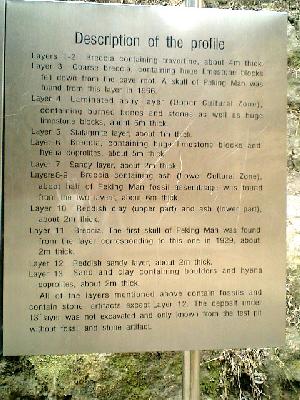 Description of the profile
Layers 1-2 Breccia containing travertine, about 4m thick.
Layer 3 Coarse breccia, containing huge limestone blocks
fell down from the cave roof. A skull of Peking Man was
found from this layer in 1966.
Layer 4 Laminated ashy layer (Upper Cultural Zone),
containing burned bones and stones as well as huge
limestone blocks, about 6m thick.
Layer 5 Stalagmite layer, about 1m thick.
Layer 6 Breccia, containing huge limestone blocks and
hyena coprolites, about 5m thick.
Layer 7 Sandy layer, about 2m thick.
Layers8-9 Breccia containing ash (lower Cultural Zone),
about half of Peking Man fossil assemblage was found
from the two layers, about 6m thick.
Layer 10 Reddish clay (upper part) and ash (lower part),
about 2m thick.
Layer 11 Breccia. The first skull of Peking Man was found
from the layer corresponding to this one in 1929, about
2m thick.
Layer 12 Reddish sandy layer, about 2m thick.
Layer 13 Sand and clay containing boulders and hyena
coprolites, about 2m thick.
All of the layers mentioned above contain fossils and
contain stone artifacts except Layer 12. The deposit under
13 layer was not excavated and only known from the test pit
without fossil and stone artifact.